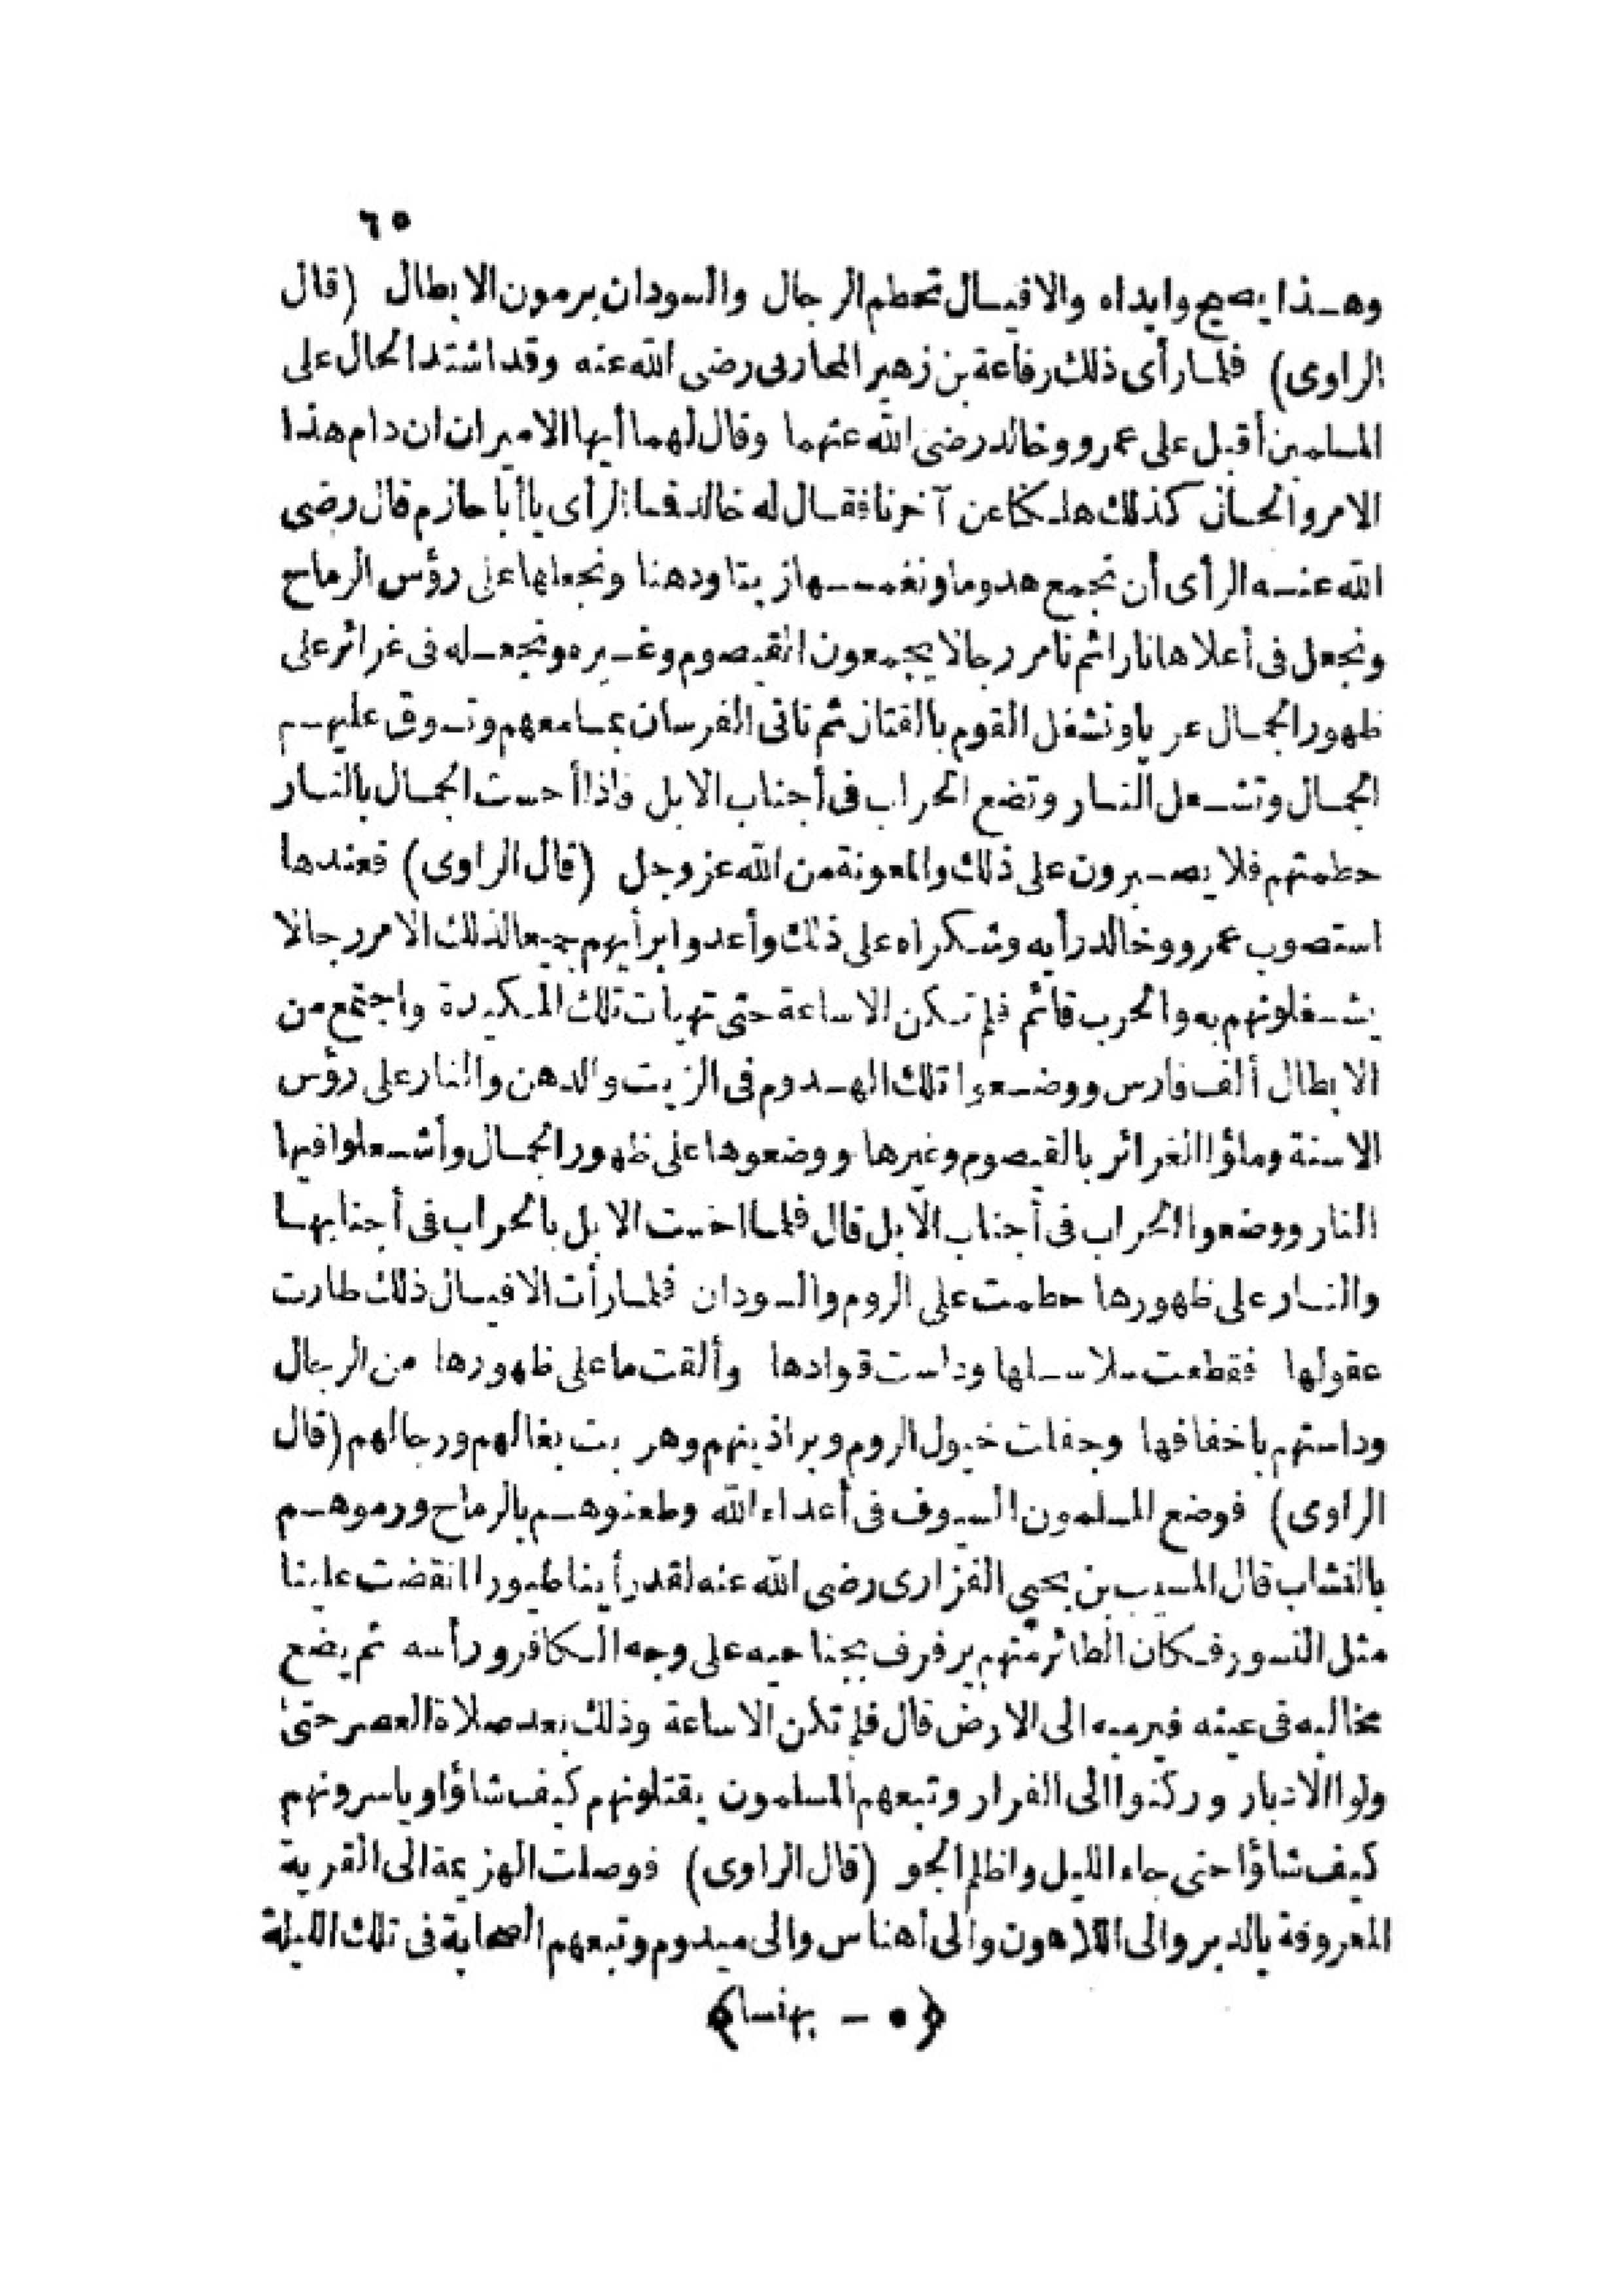 ٦٥
وهذا يصيح وايداه والافيال تحطم الرجال والسودان يرمون الابطال (قال
الراوى) فلما رأى ذلك رفاعة بن زهير المحاربى رضى الله عنه وقد اشتد الحال على
المسلمين أقبل على عمرو وخالد رضى الله عنهما وقال لهما أيها الاميران ان دام هذا
الامر والحال كذلك هلكنا عن آخرنا فقال له خالد فما الرأى ياأبا حازم قال رضى
الله عنه الرأى أن نجمع هدوما ونغمسها زيتا ودهنا ونجعلها على رؤس الرماح
ونجعل فى أعلاها نارا ثم نأمر رجالا يجمعون القيصوم وغيره ونجعله فى غرائر على
ظهور الجمال عريا ونشغل القوم بالقتال ثم تاتى الفرسان بمسامعهم وتسوق عليهم
الجمال وتشعل النار وتضع الحراب فى أجناب الابل فاذا أحست الجمال بالنار
حطمتهم فلا يصبرون على ذلك والمعونة من الله عز وجل (قال الراوى) فعندها
استصوب عمرو وخالد رأيه وشكراه على ذلك وأعدوا برأيهم جميعا لذلك الامر رجالا
يشغلونهم به والحرب قائم فلم تكن الا ساعة حتى تهيأت تلك المكيدة واجتمع من
الابطال ألف فارس ووضعوا تلك الهدوم فى الزيت والدهن والنار على رؤس
الاسنة وملؤا الغرائر بالقيصوم وغيرها ووضعوها على ظهور الجمال وأشعلوا فيها
النار ووضعوا الحراب فى أجناب الابل قال فلما احست الابل بالحراب فى أجنابها
والنار على ظهورها حطمت على الروم والسودان فلما رأت الافيال ذلك طارت
عقولها فقطعت سلاسلها وداست قوادها وألقت ما على ظهورها من الرجال
وداستهم باخفافها وجفلت خيول الروم وبراذينهم وهربت بغالهم ورجالهم (قال
الراوى) فوضع المسلمون السيوف فى أعداء الله وطعنوهم بالرماح ورموهم
بالنشاب قال المسيب بن يحيى الفزارى رضى الله عنه لقد رأينا طيورا انقضت علينا
مثل النسور فكان الطائر منهم يرفرف بجناحيه على وجه الكافر ورأسه ثم يضع
مخالبه فى عينه فيرميه الى الارض قال فلم تكن الا ساعة وذلك بعد صلاة العصر حتى
ولوا الادبار وركنوا الى الفرار وتبعهم المسلمون يقتلونهم كيف شاؤا وياسرونهم
كيف شاؤا حتى جاء الليل واظلم الجو (قال الراوى) فوصلت الهزيمة الى القرية
المعروفة بالدير والى اللاهون والى أهناس والى ميدوم وتبعهم الصحابة فى تلك الليلة
﴿٥ - بهنسا﴾